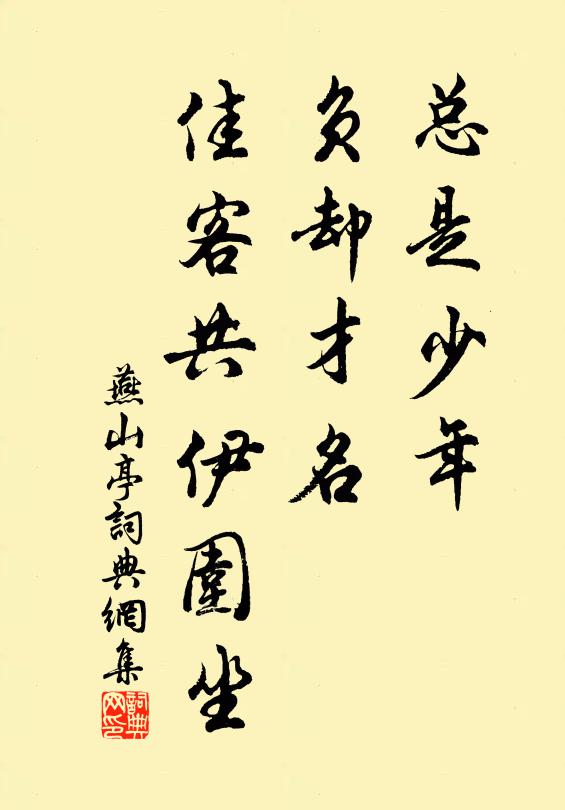 总是少年
负却才名
佳客共伊圍坐
燕山亭詞典網集
詞典网印